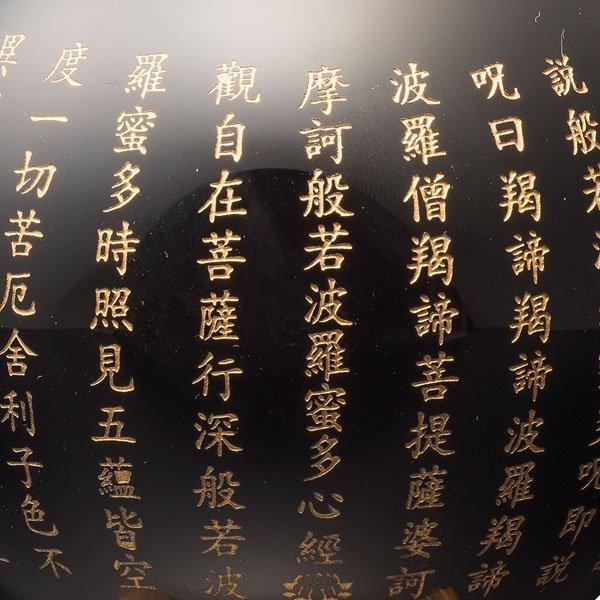 説般若呪即説
呪曰羯諦羯諦波羅羯諦
波羅僧羯諦菩提薩婆訶
摩訶般若波羅蜜多心經
觀自在菩薩行深般若波
羅蜜多時照見五蘊皆空
度一切苦厄舍利子色不
異